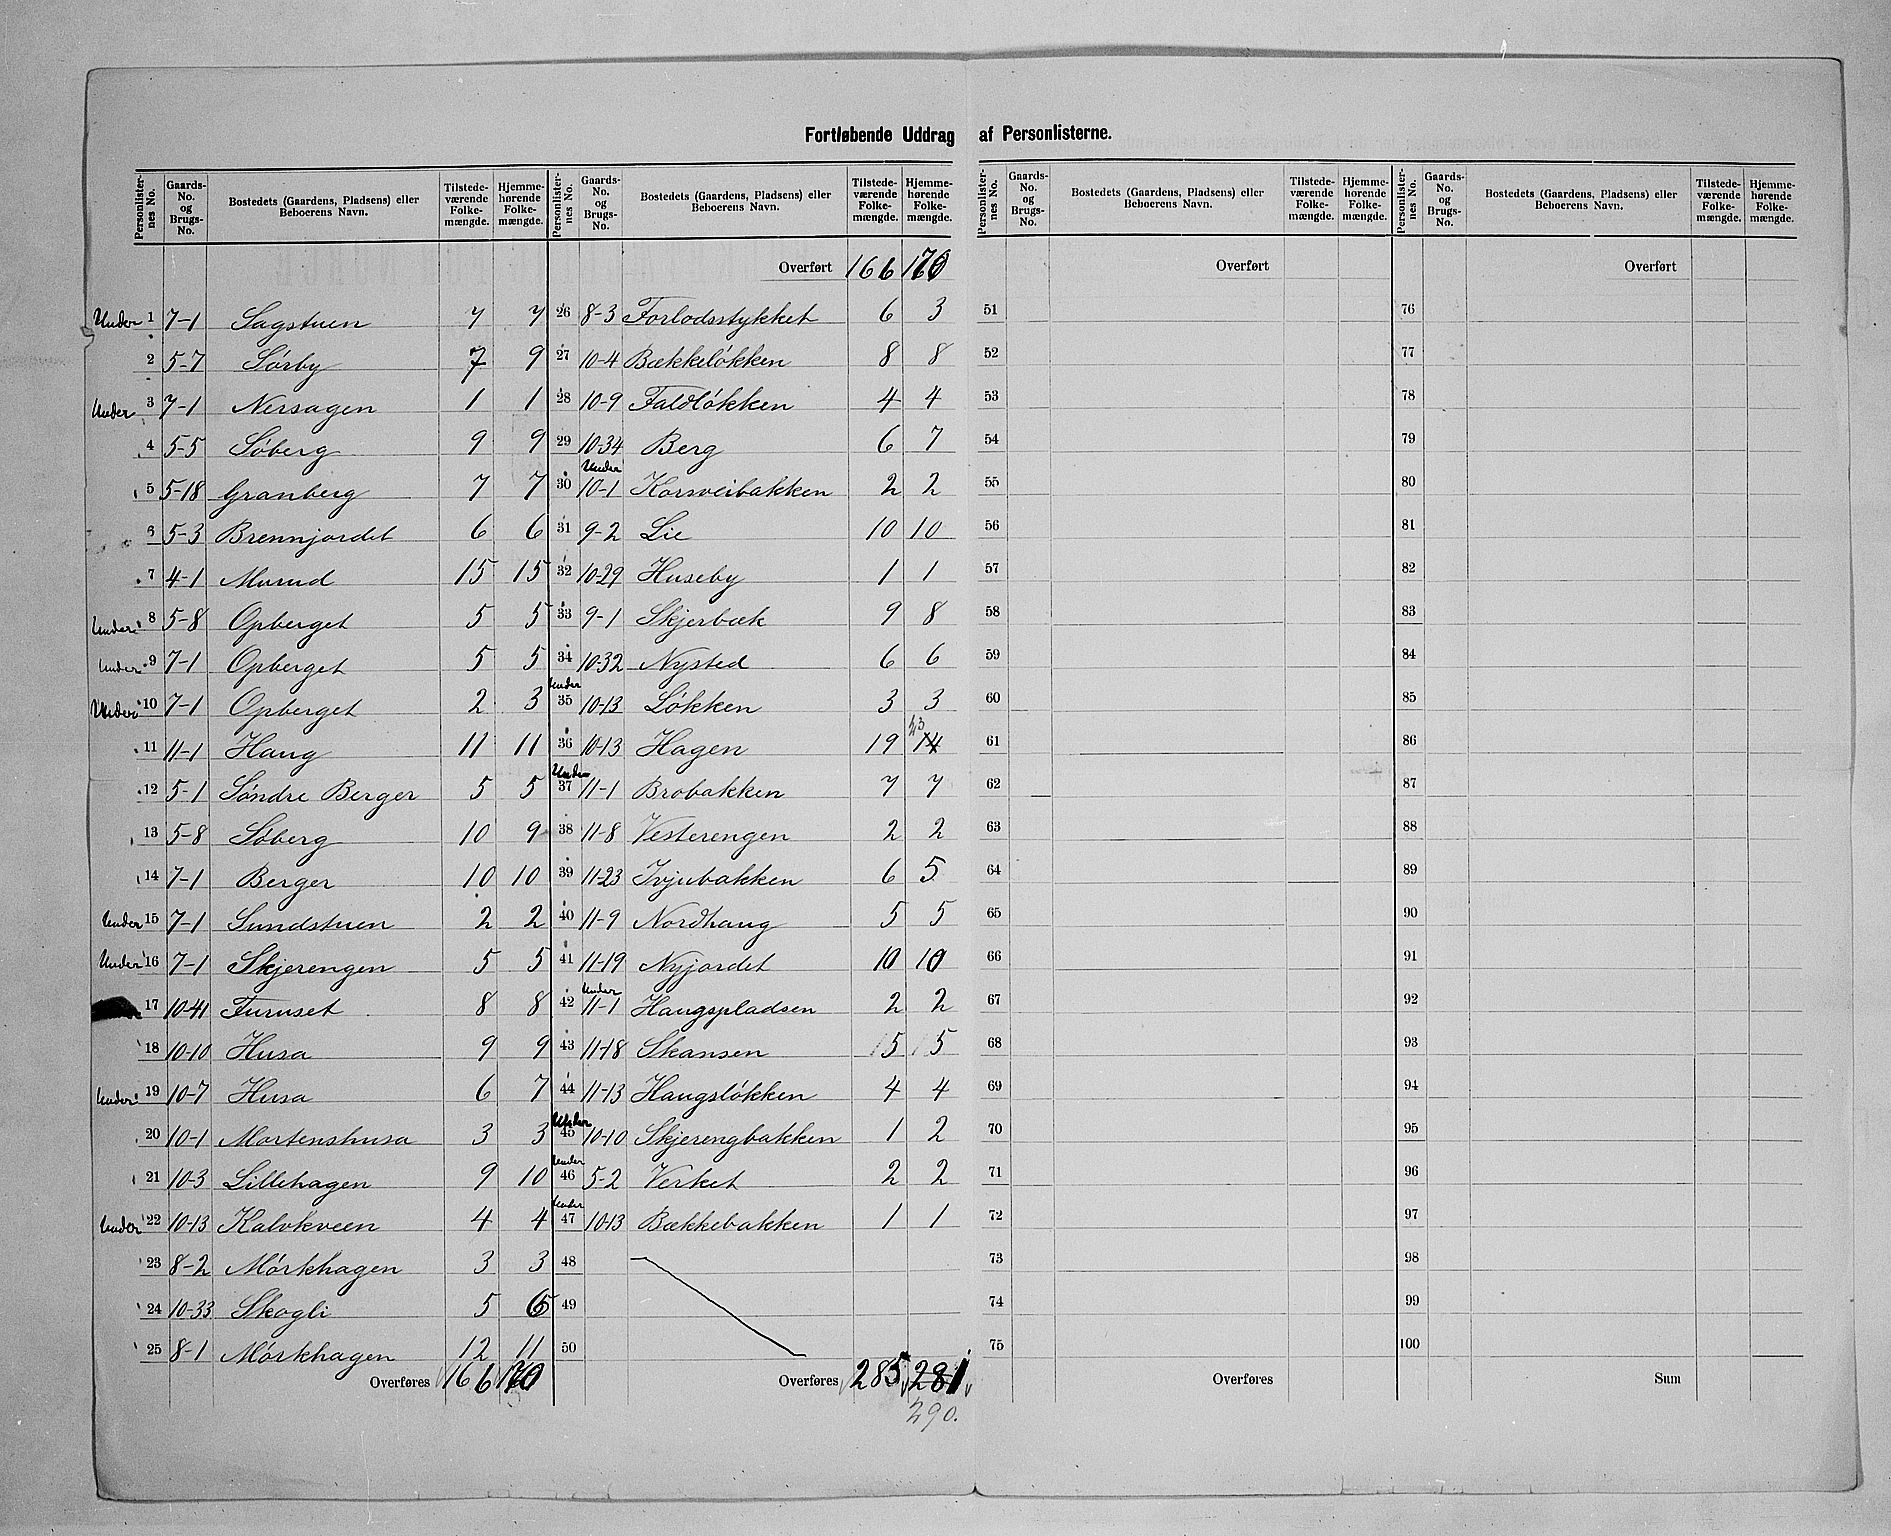 Fortløbende Uddrag af Personlisterne.
Personlister-nes No. | Gaards-No. og Brugs-No. | Bostedets (Gaardens, Pladsens) eller Beboerens Navn. | Tilstede-værende Folke-mængde. | Hjemme-hørende Folke-mængde.
Under 1 7-1 Sagstuen 7 7
2 5-7 Sørby 7 9
Under 3 7-1 Nersagen 1 1
4 5-5 Søberg 9 9
5 5-18 Granberg 7 7
6 5-3 Brennjordet 6 6
7 4-1 Morud 15 15
Under 8 5-8 Opberget 5 5
Under 9 7-1 Opberget 5 5
Under 10 7-1 Opberget 2 3
11 11-1 Haug 11 11
12 5-1 Søndre Berger 5 5
13 5-8 Søberg 10 9
14 7-1 Berger 10 10
Under 15 7-1 Sundstuen 2 2
Under 16 7-1 Skjerengen 5 5
17 10-41 Furuset 8 8
18 10-10 Husa 9 9
Under 19 10-7 Husa 6 7
20 10-1 Mortenshusa 3 3
21 10-3 Lillehagen 9 10
Under 22 10-13 Kalvkveen 4 4
23 8-2 Mørkhagen 3 3
24 10-33 Skogli 5
25 8-1 Mørkhagen 12 11
Overføres 166 170
Personlister-nes No. | Gaards-No. og Brugs-No. | Bostedets (Gaardens, Pladsens) eller Beboerens Navn. | Tilstede-værende Folke-mængde. | Hjemme-hørende Folke-mængde.
Overført 166 170
26 8-3 Forlodsstykket 6 3
27 10-4 Bækkeløkken 8 8
28 10-9 Faldløkken 4 4
29 10-34 Berg 6 7
30 Under 10-1 Korsveibakken 2 2
31 9-2 Lie 10 10
32 10-29 Huseby 1 1
33 9-1 Skjerbæk 9 8
34 10-32 Nysted 6 6
Under 35 10-13 Løkken 3 3
36 10-13 Hagen 19 14 23
Under 37 11-1 Brobakken 7 7
38 11-8 Vesterengen 2 2
39 11-23 Ivjubakken 6 5
40 11-9 Nordhaug 5 5
41 11-19 Nyjordet 10 10
42 Under 11-1 Haugspladsen 2 2
43 11-18 Skansen 5 5
44 11-13 Haugsløkken 4 4
Under 45 10-10 Skjerengbakken 1 2
Under 46 5-2 Verket 2 2
Under 47 10-13 Bækkebakken 1 1
48
49
50
Overføres 285 281
290.
Personlister-nes No. | Gaards-No. og Brugs-No. | Bostedets (Gaardens, Pladsens) eller Beboerens Navn. | Tilstede-værende Folke-mængde. | Hjemme-hørende Folke-mængde.
Overført
51
52
53
54
55
56
57
58
59
60
61
62
63
64
65
66
67
68
69
70
71
72
73
74
75
Overføres
Personlister-nes No. | Gaards-No. og Brugs-No. | Bostedets (Gaardens, Pladsens) eller Beboerens Navn. | Tilstede-værende Folke-mængde. | Hjemme-hørende Folke-mængde.
Overført
76
77
78
79
80
81
82
83
84
85
86
87
88
89
90
91
92
93
94
95
96
97
98
99
100
Sum